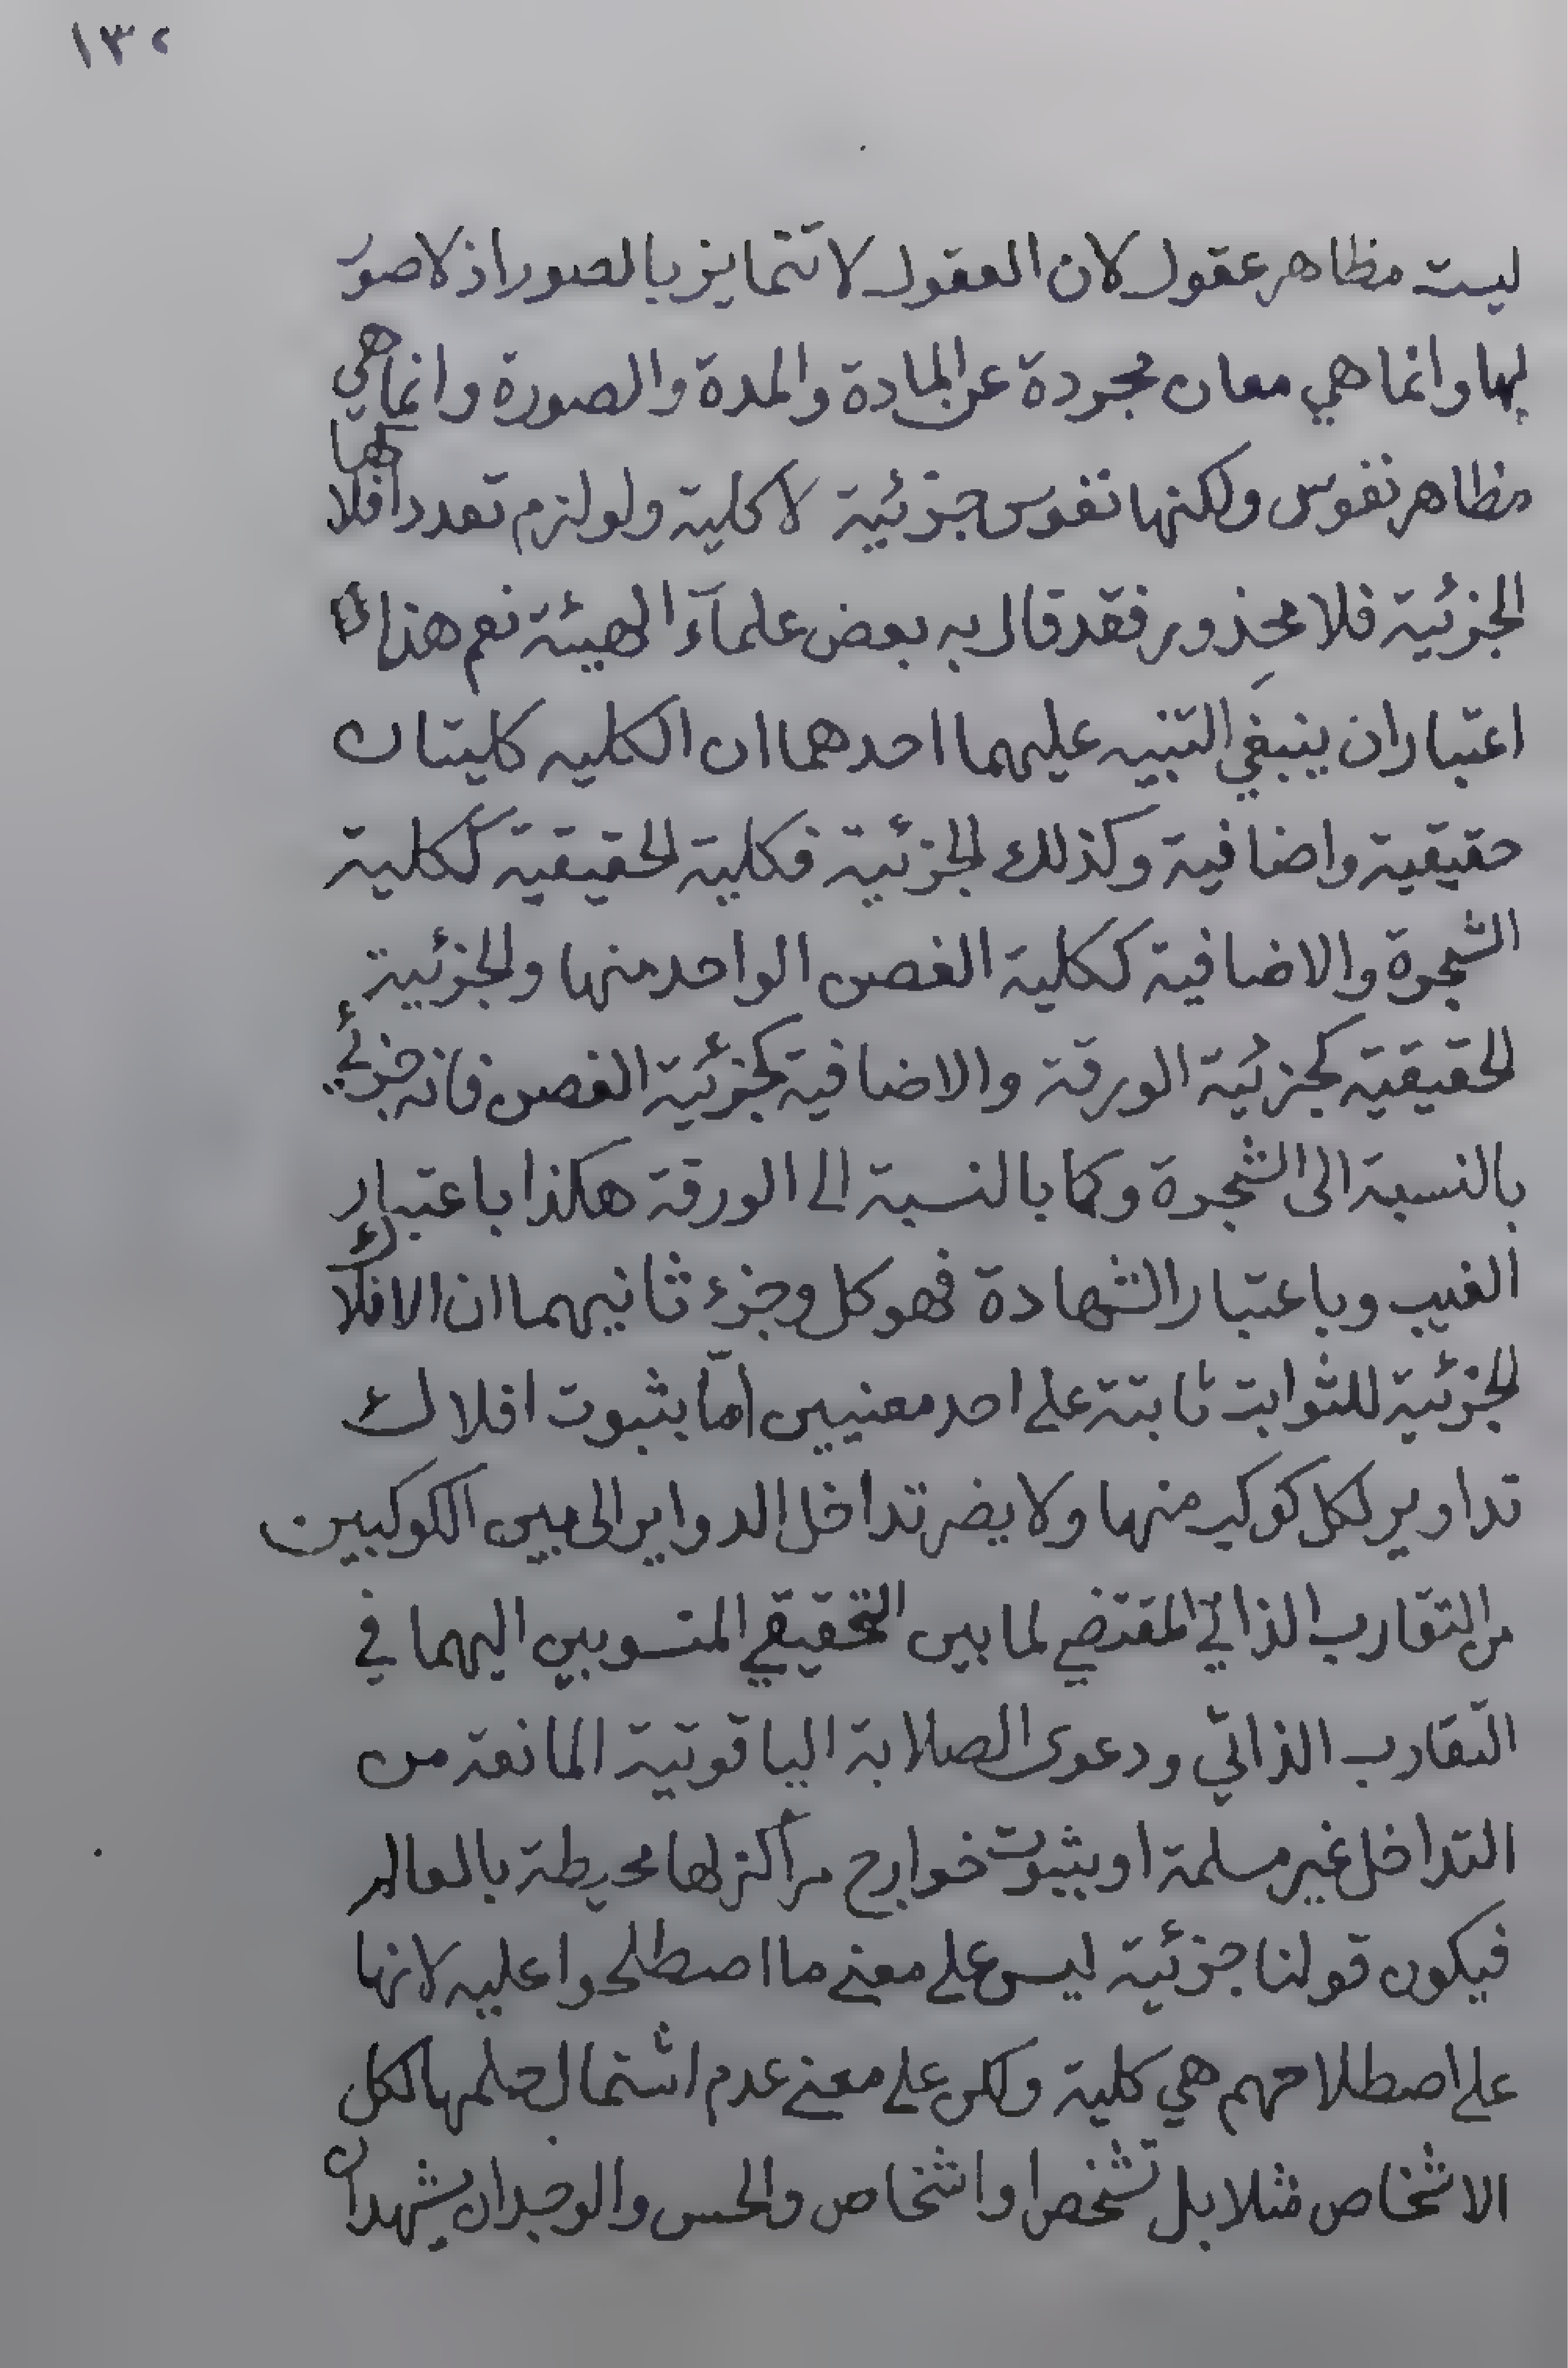 ١٣٢
ليست مظاهر عقول لان العقول لا تتمايز بالصور اذ لا صور
لها وانما هي معان مجردة عن المادة والمدة والصورة وانما هي
مظاهر نفوس ولكنها نفوس جزئية لا كلية ولو لزم تعدد افلاكها
الجزئية فلا محذور فقد قال به بعض علمآء الهيئة نعم هذا
اعتباران ينبغي التنبيه عليهما احدهما ان الكليه كليتان
حقيقية واضافية وكذلك الجزئية فكلية الحقيقية ككلية
الشجرة والاضافية ككلية الغصن الواحد منها والجزئية
الحقيقية كجزئية الورقة والاضافية كجزئية الغصن فانه جزئي
بالنسبة الى الشجرة وكما بالنسبة الى الورقة هكذا باعتبار
الغيب وباعتبار الشهادة فهو كل وجزء ثانيهما ان الافلاك
الجزئية للثوابت ثابتة على احد معنيين امّا بثبوت افلاك
تداوير لكل كوكب منها ولا يضر تداخل الدواير الى بين الكوكبين
من التقارب الذاتي المقتضي لما بين التحقيقي المنسوبين اليهما في
التقارب الذاتي ودعوى الصلابة الياقوتية المانعة من
التداخل غير مسلمة او بثبوت خوارج مراكز لها محيطة بالعالم
فيكون قولنا جزئية ليس على معنى ما اصطلحوا عليه لانها
على اصطلاحهم هي كلية ولكن على معنى عدم اشتمال حلمها لكل
الاشخاص مثلا بل تشخص او اشخاص والحس والوجدان يشهد ان